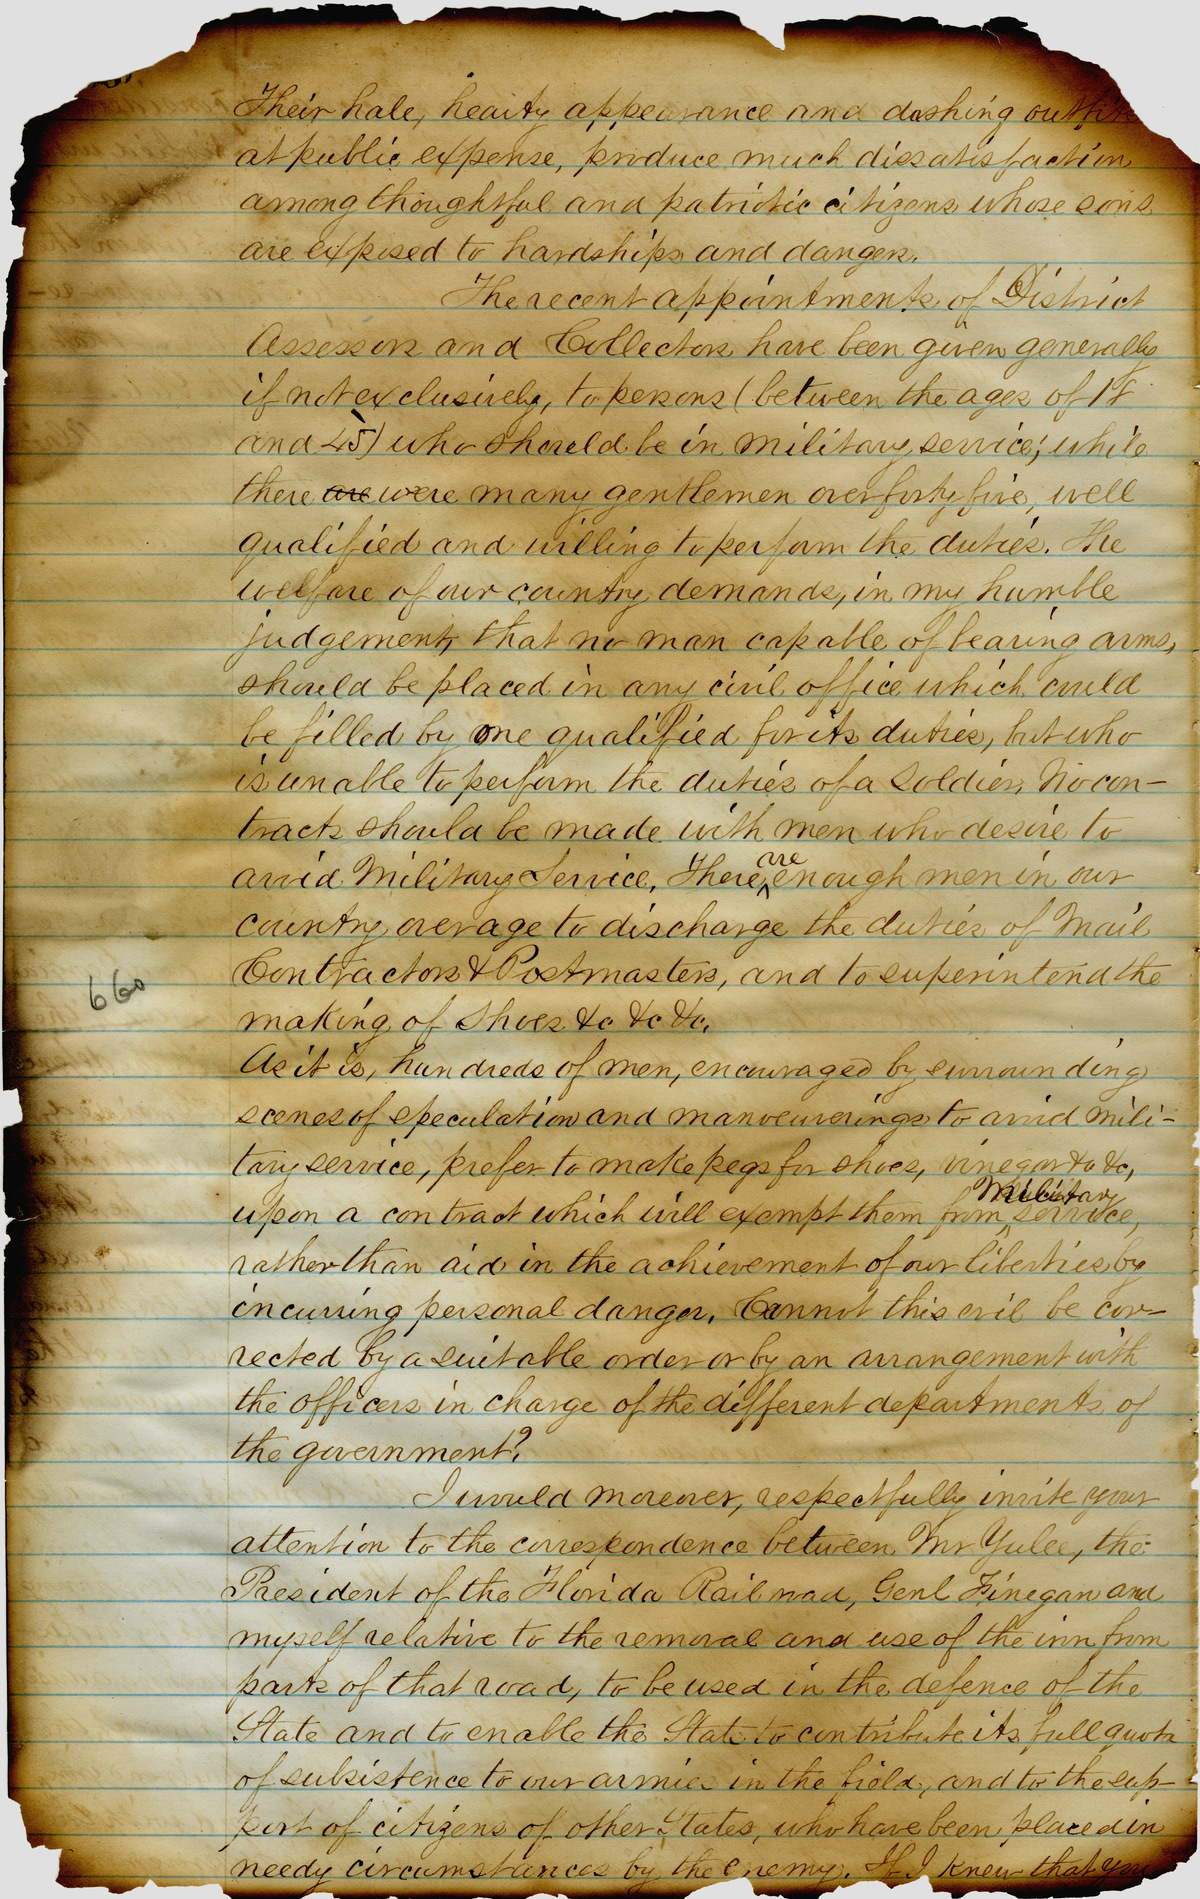 Their hale, hearty appearance and dashing outfits
at public expense, produce much dissatisfaction
among thoughtful and patriotic citizens whose sons
are exposed to hardships and dangers.
The recent appointments of District
Assessors and Collectors have been given generally
if not exclusively, to persons (between the ages of 18
and 45) who should be in military service; while
there are were many gentlemen over forty five, well
qualified and willing to perform the duties. The
welfare of our country demands, in my humble
judgement, that no man capable of bearing arms,
should be placed in any civil office which could
be filled by one qualified for its duties, but who
is unable to perform the duties of a soldier. No con-
tracts should be made with men who desire to
avoid Military Service. There are enough men in our
country overage to discharge the duties of Mail
Contractors & Postmasters, and to superintend the
making of Shoes &c &c &c.
660
As it is, hundreds of men, encouraged by surrounding
scenes of speculation and manoeuverings to avoid mili-
tary service, prefer to make pegs for shoes, vinegar &c &c,
upon a contract which will exempt them from Military service,
rather than aid in the achievement of our liberties by
incurring personal danger. Cannot this evil be cor-
rected by a suitable order or by an arrangement with
the officers in charge of the different departments of
the government?
I would moreover, respectfully invite your
attention to the correspondence between Mr Yulee, the
President of the Florida Railroad, Genl Finegan and
myself relative to the removal and use of the iron from
parts of that road, to be used in the defence of the
State and to enable the State to contribute its full quota
of subsistence to our armies in the field, and to the sup-
port of citizens of other States, who have been placed in
needy circumstances by the enemy. If I knew that you